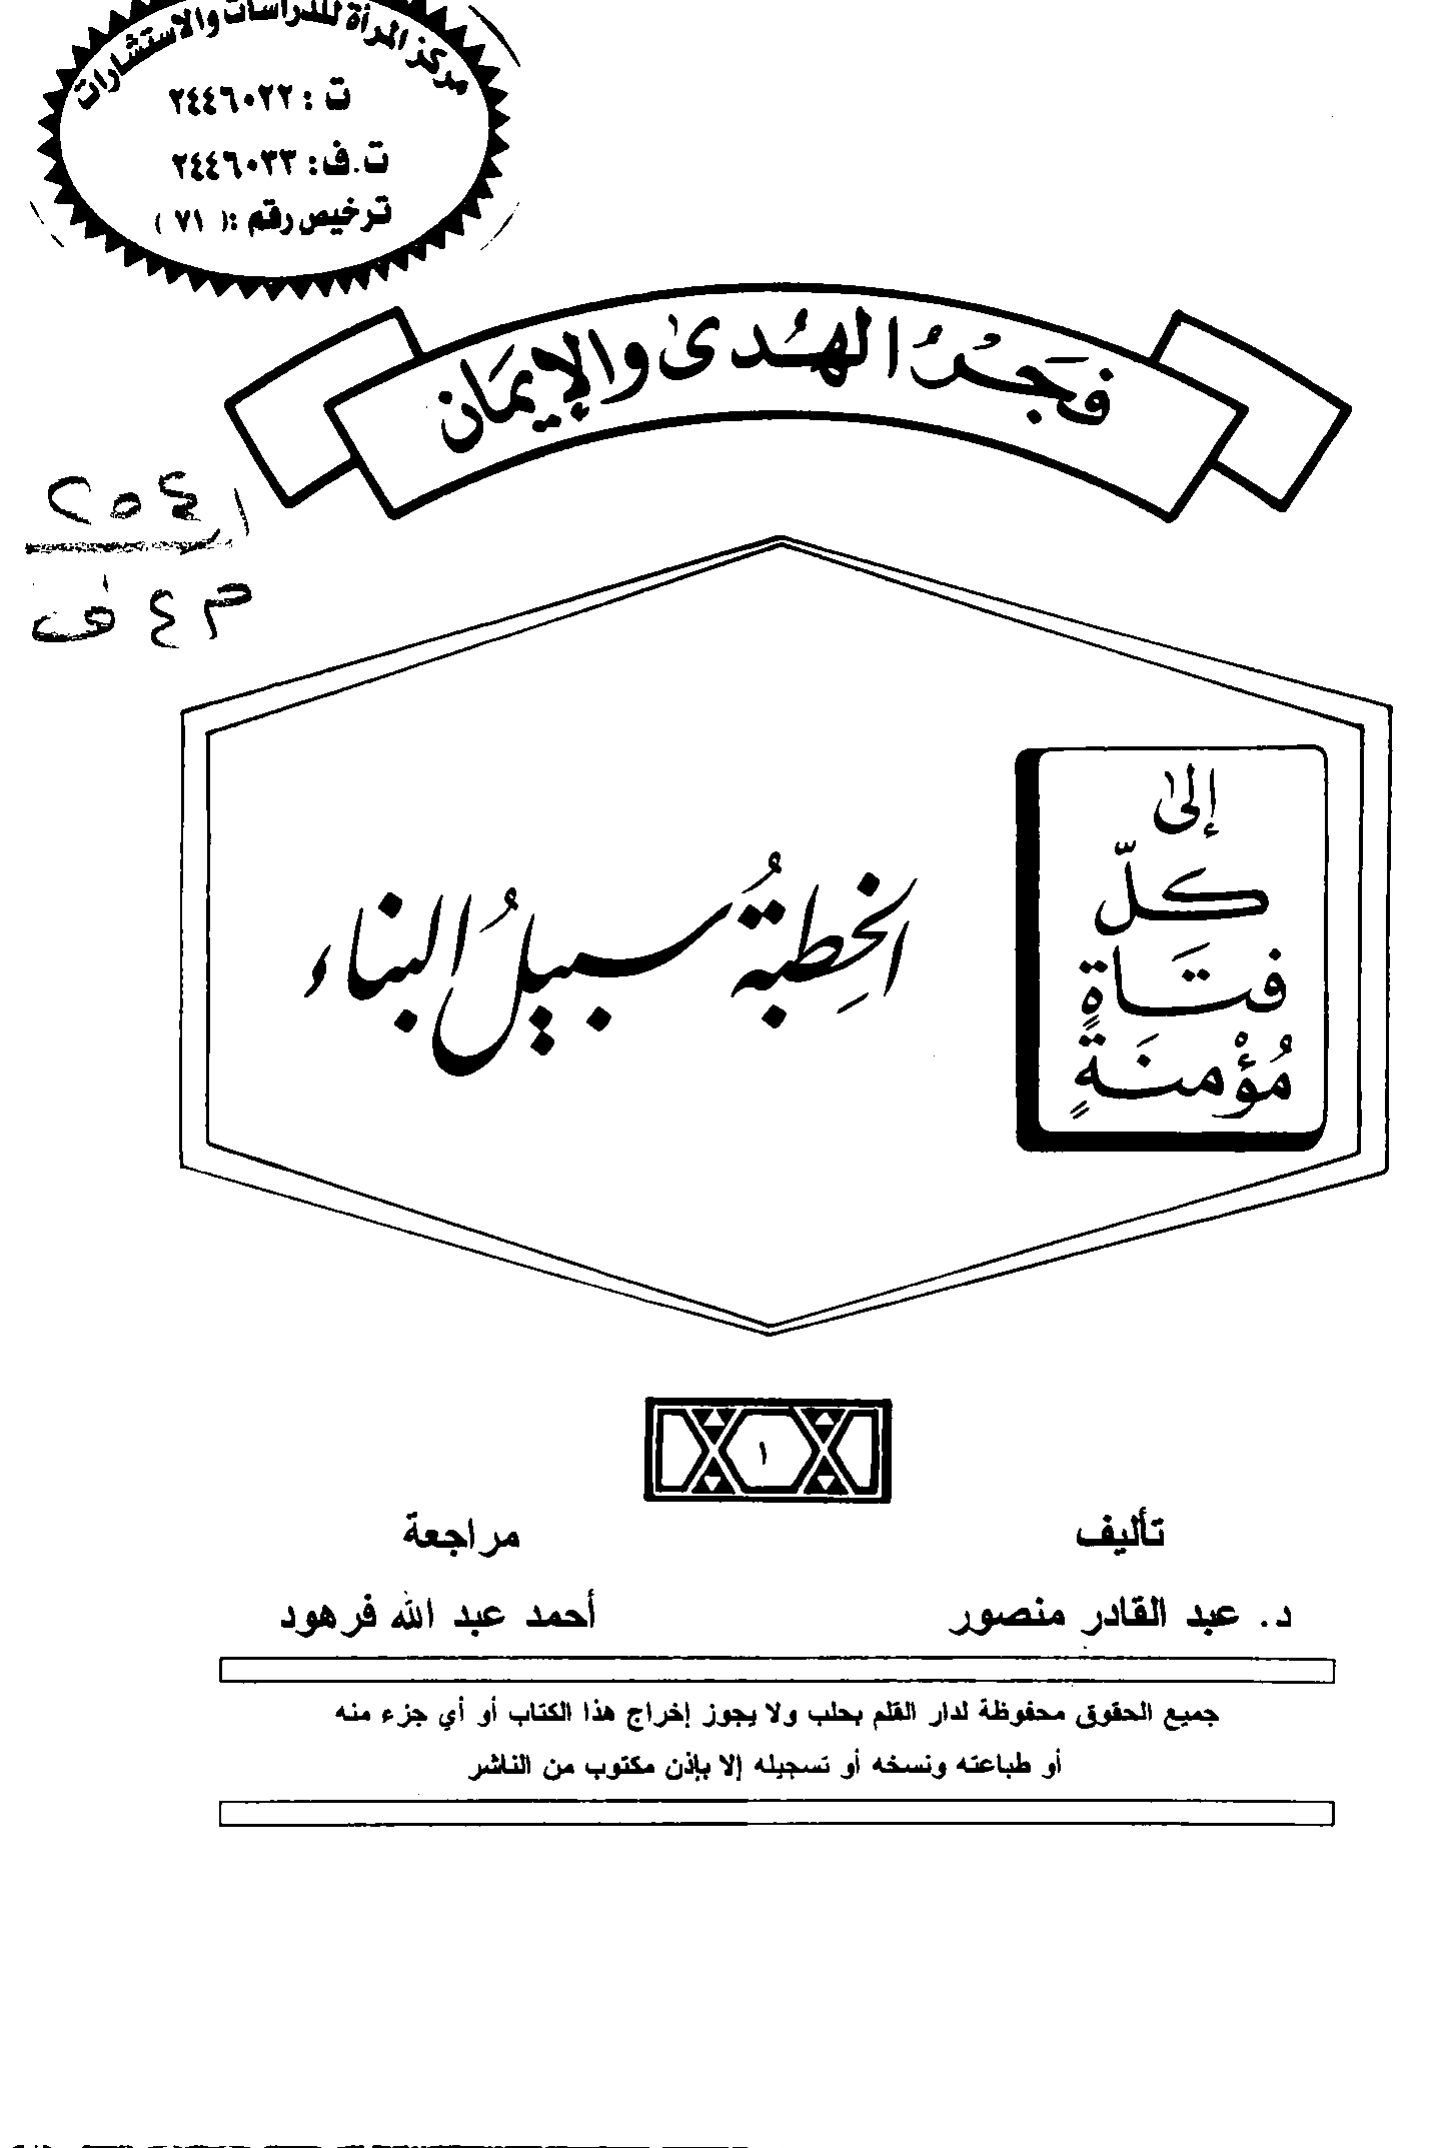 مركز المرأة للدراسات والاستشارات
ت : ٢٤٤٦٠٢٢
ت.ف: ٢٤٤٦٠٣٣
ترخيص رقم :( ٧١ )
فَجَرُ الهُدى والإيمَان
٢٥٤٫١
م ٤ ف
إلى
كلّ
فتَاةٍ
مُؤْمنَةٍ
الخِطبةُ سبيلُ البناء
١
تأليف
د. عبد القادر منصور
مراجعة
أحمد عبد الله فرهود
جميع الحقوق محفوظة لدار القلم بحلب ولا يجوز إخراج هذا الكتاب أو أي جزء منه
أو طباعته ونسخه أو تسجيله إلا بإذن مكتوب من الناشر